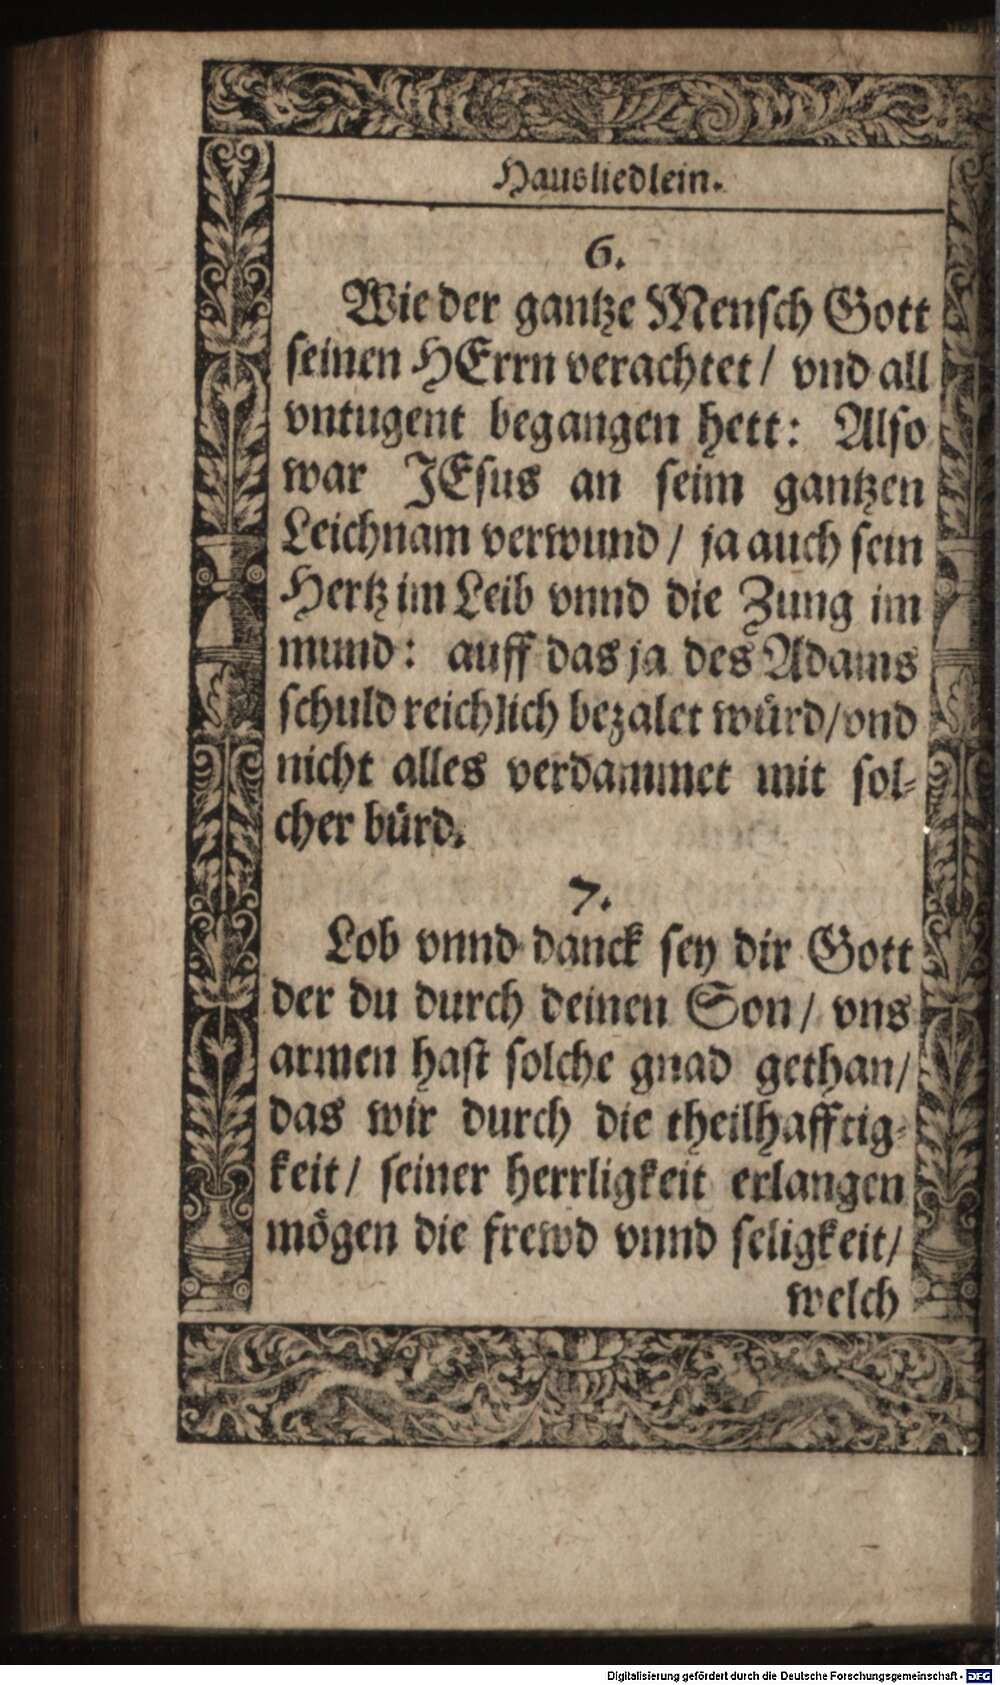 Hausliedlein.
6.
Wie der gantze Mensch Gott
seinen HErrn verachtet / vnd all
vntugent begangen hett: Also
war JEsus an seim gantzen
Leichnam verwund / ja auch sein
Hertz im Leib vnnd die Zung im
mund: auff das ja des Adams
schuld reichlich bezalet würd / vnd
nicht alles verdammet mit sol-
cher bürd.
7.
Lob vnnd danck sey dir Gott
der du durch deinen Son / vns
armen hast solche gnad gethan /
das wir durch die theilhafftig-
keit / seiner herrligkeit erlangen
mögen die frewd vnnd seligkeit /
welch
Digitalisierung gefördert durch die Deutsche Forschungsgemeinschaft - DFG